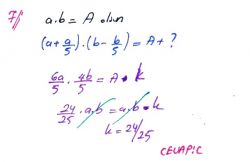 7) a.b = A olsun
(a+a/5).(b-b/5) = A+ ?
6a/5 . 4b/5 = A.k
24/25 . a.b = a.b.k
k = 24/25
CEVAP: C